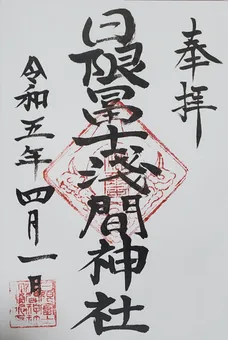 奉拝
日限冨士浅間神社
令和五年四月一日